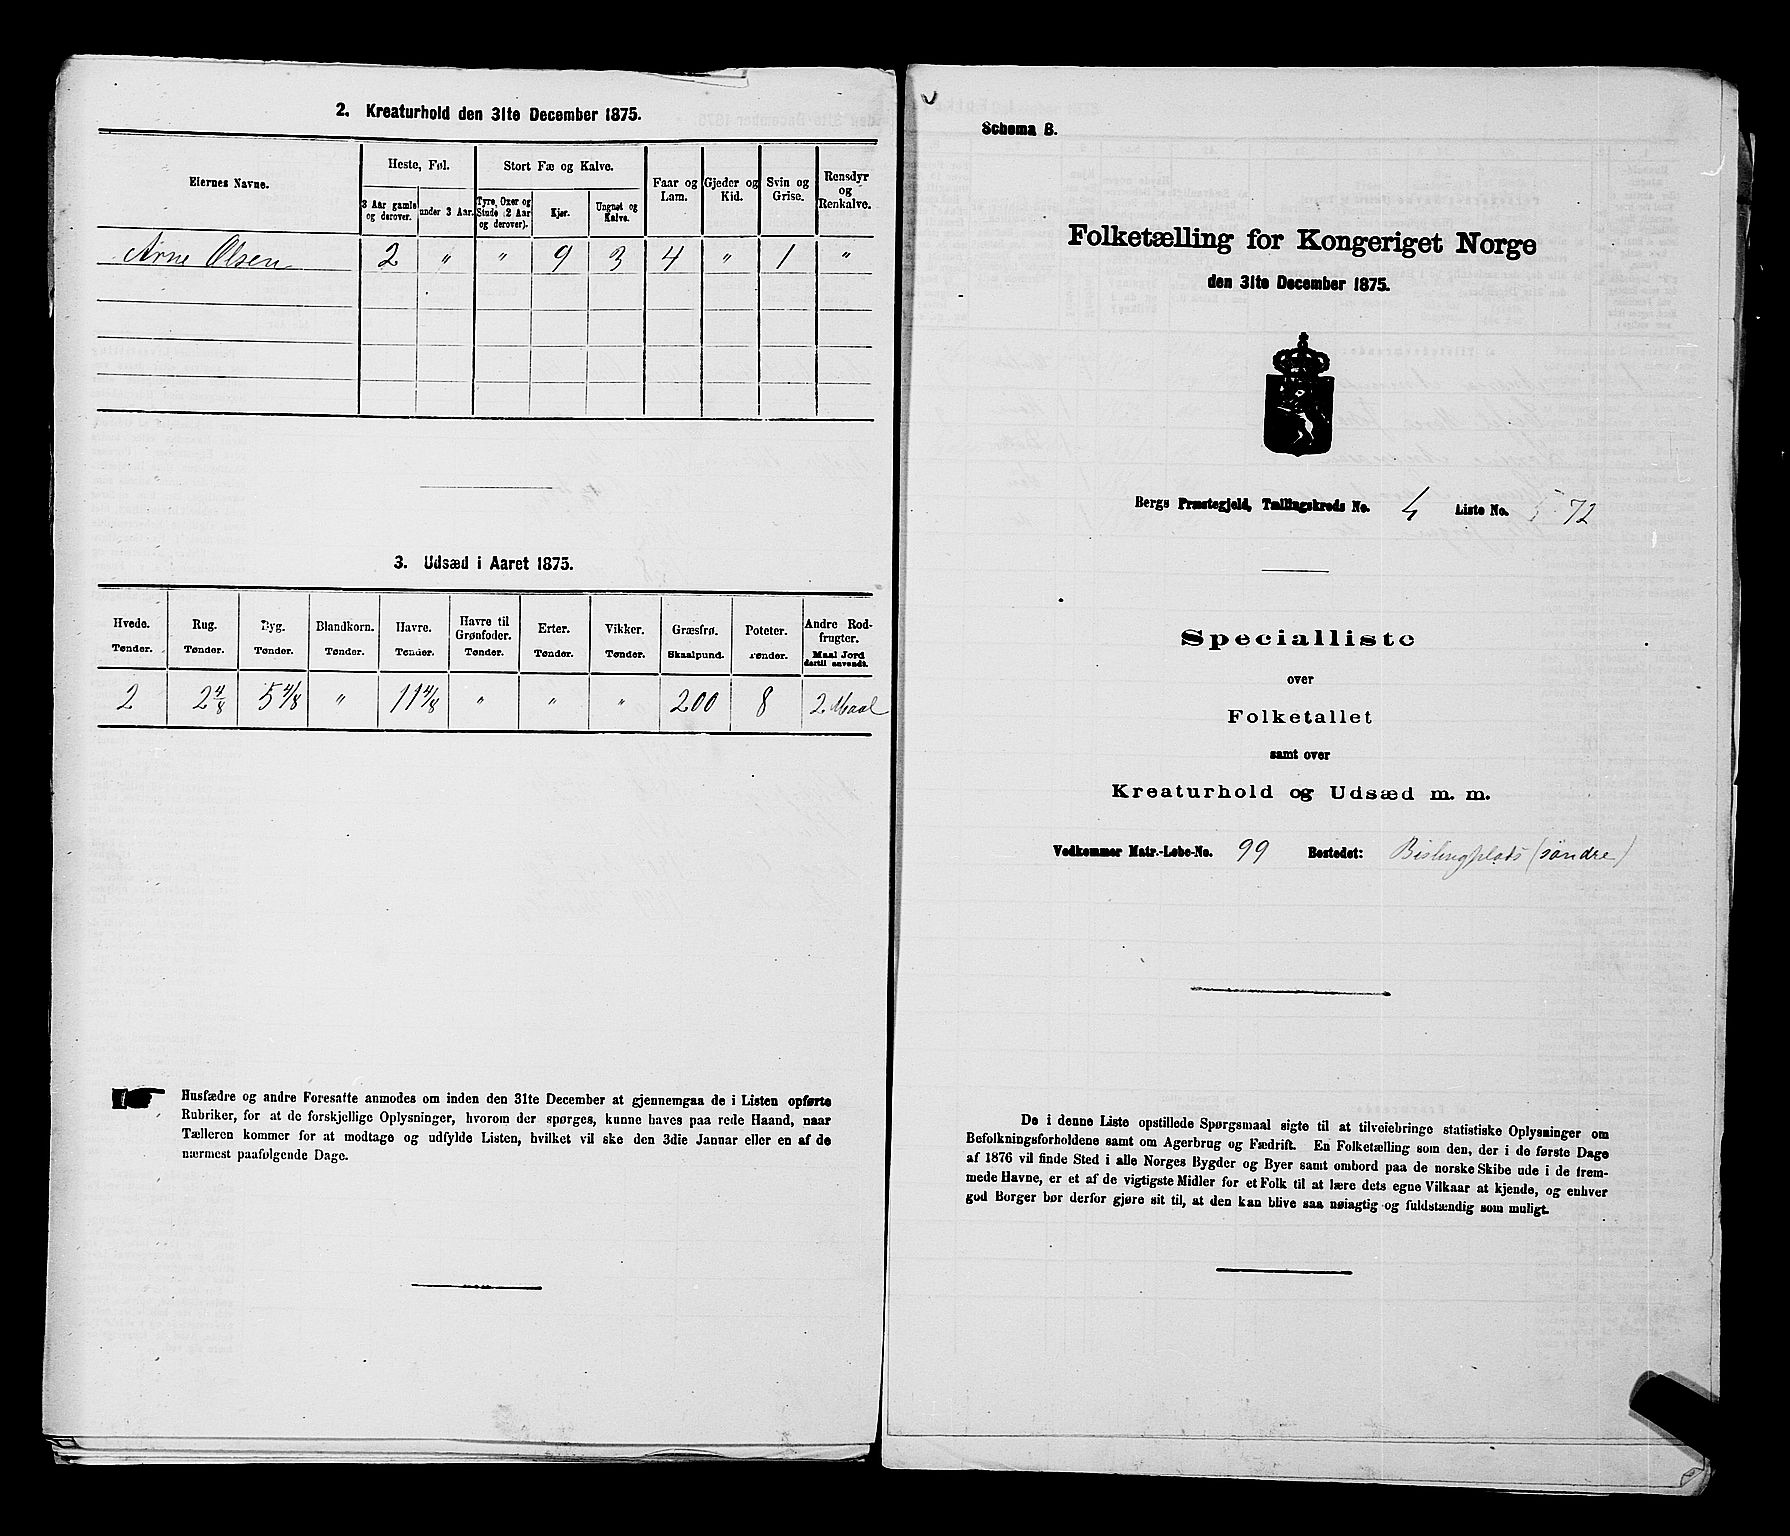 2. Kreaturhold den 31te December 1875.
Eiernes Navne.
Heste, Føl.
Stort Fæ og Kalve.
Faar og Lam.
Gjeder og Kid.
Svin og Grise.
Rensdyr og Renkalve.
3 Aar gamle og derover.
under 3 Aar.
Tyre, Oxer og Stude (2 Aar og derover).
Kjør.
Ungnøt og Kalve.
Arne Olsen 2 " " 9 3 4 " 1 "
3. Udsæd i Aaret 1875.
Hvede. Rug. Byg. Blandkorn. Havre. Havre til Grønfoder. Erter. Vikker. Græsfrø. Poteter. Andre Rodfrugter.
Tønder. Tønder. Tønder. Tønder. Tønder. Tønder. Tønder. Tønder. Skaalpund. Tønder. Maal Jord dertil anvendt.
2 2 4/8 5 4/8 " 11 4/8 " " " 200 8 2 Maal
Husfædre og andre Foresatte anmodes om inden den 31te December at gjennemgaa de i Listen opførte
Rubriker, for at de forskjellige Oplysninger, hvorom der spørges, kunne haves paa rede Haand, naar
Tælleren kommer for at modtage og udfylde Listen, hvilket vil ske den 3die Januar eller en af de
nærmest paafølgende Dage.
Schema B.
Folketælling for Kongeriget Norge
den 31te December 1875.
Bergs Præstegjeld, Tællingskreds No. 4 Liste No. 72
Specialliste
over
Folketallet
samt over
Kreaturhold og Udsæd m. m.
Vedkommer Matr.-Løbe-No. 99 Bostedet: (søndre)
De i denne Liste opstillede Spørgsmaal sigte til at tilveiebringe statistiske Oplysninger om
Befolkningsforholdene samt om Agerbrug og Fædrift. En Folketælling som den, der i de første Dage
af 1876 vil finde Sted i alle Norges Bygder og Byer samt ombord paa de norske Skibe ude i de frem-
mede Havne, er et af de vigtigste Midler for et Folk til at lære dets egne Vilkaar at kjende, og enhver
god Borger bør derfor gjøre sit til, at den kan blive saa nøiagtig og fuldstændig som muligt.